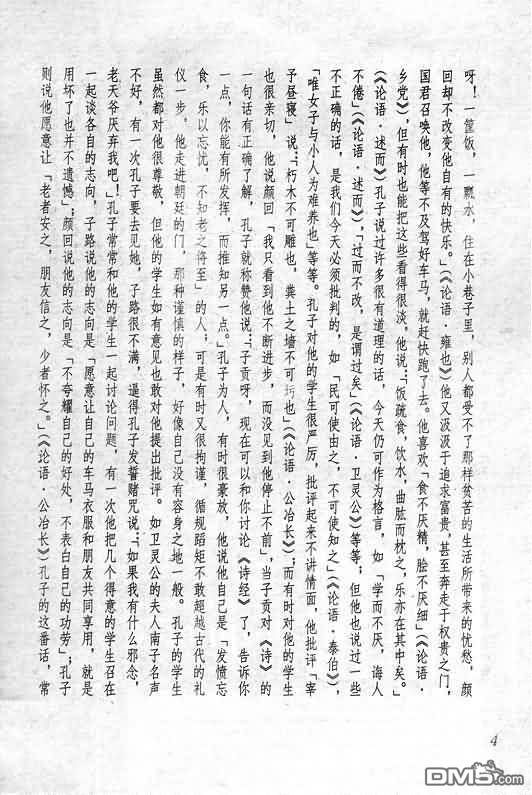 呀！一筐饭，一瓢水，住在小巷子里，别人都受不了那样贫苦的生活所带来的忧愁，颜
回却不改变他自有的快乐。」（《论语·雍也》）他又汲汲于追求富贵，甚至奔走于权贵之门，
国君召唤他，他等不及驾好车马，就赶快跑了去。他喜欢「食不厌精，脍不厌细」（《论语·
乡党》），但有时也能把这些看得很淡，他说：「饭疏食，饮水，曲肱而枕之，乐亦在其中矣。」
（《论语·述而》）孔子说过许多很有道理的话，今天仍可作为格言，如「学而不厌，诲人
不倦」（《论语·述而》），「过而不改，是谓过矣」（《论语·卫灵公》）等等；但他也说过一些
不正确的话，是我们今天必须批判的，如「民可使由之，不可使知之」（《论语·泰伯》），
「唯女子与小人为难养也」等等。孔子对他的学生很严厉，批评起来不讲情面，他批评「宰
予昼寝」说：「朽木不可雕也，粪土之墙不可圬也」（《论语·公冶长》）；而有时对他的学生
也很亲切，他说颜回「我只看到他不断进步，而没见到他停止不前」，当子贡对《诗》的
一句话有正确了解，孔子就称赞他说：「子贡呀，现在可以和你讨论《诗经》了，告诉你
一点，你能有所发挥，而推知另一点。」孔子为人，有时很豪放，他说他自己是「发愤忘
食，乐以忘忧，不知老之将至」的人；可是有时又很拘谨，循规蹈矩不敢超越古代的礼
仪一步，他走进朝廷的门，那种谨慎的样子，好像自己没有容身之地一般。孔子的学生
虽然都对他很尊敬，但他的学生如有意见也敢对他提出批评。如卫灵公的夫人南子名声
不好，有一次孔子要去见她，子路很不满，逼得孔子发誓赌咒说：「如果我有什么邪念，
老天爷厌弃我吧！」孔子常常和他的学生一起讨论问题，有一次他把几个得意的学生召在
一起谈各自的志向，子路说他的志向是「愿意让自己的车马衣服和朋友共同享用，就是
用坏了也并不遗憾」；颜回说他的志向是「不夸耀自己的好处，不表白自己的功劳」；孔子
则说他愿意让「老者安之，朋友信之，少者怀之。」（《论语·公冶长》）孔子的这番话，常
4
DM5.com